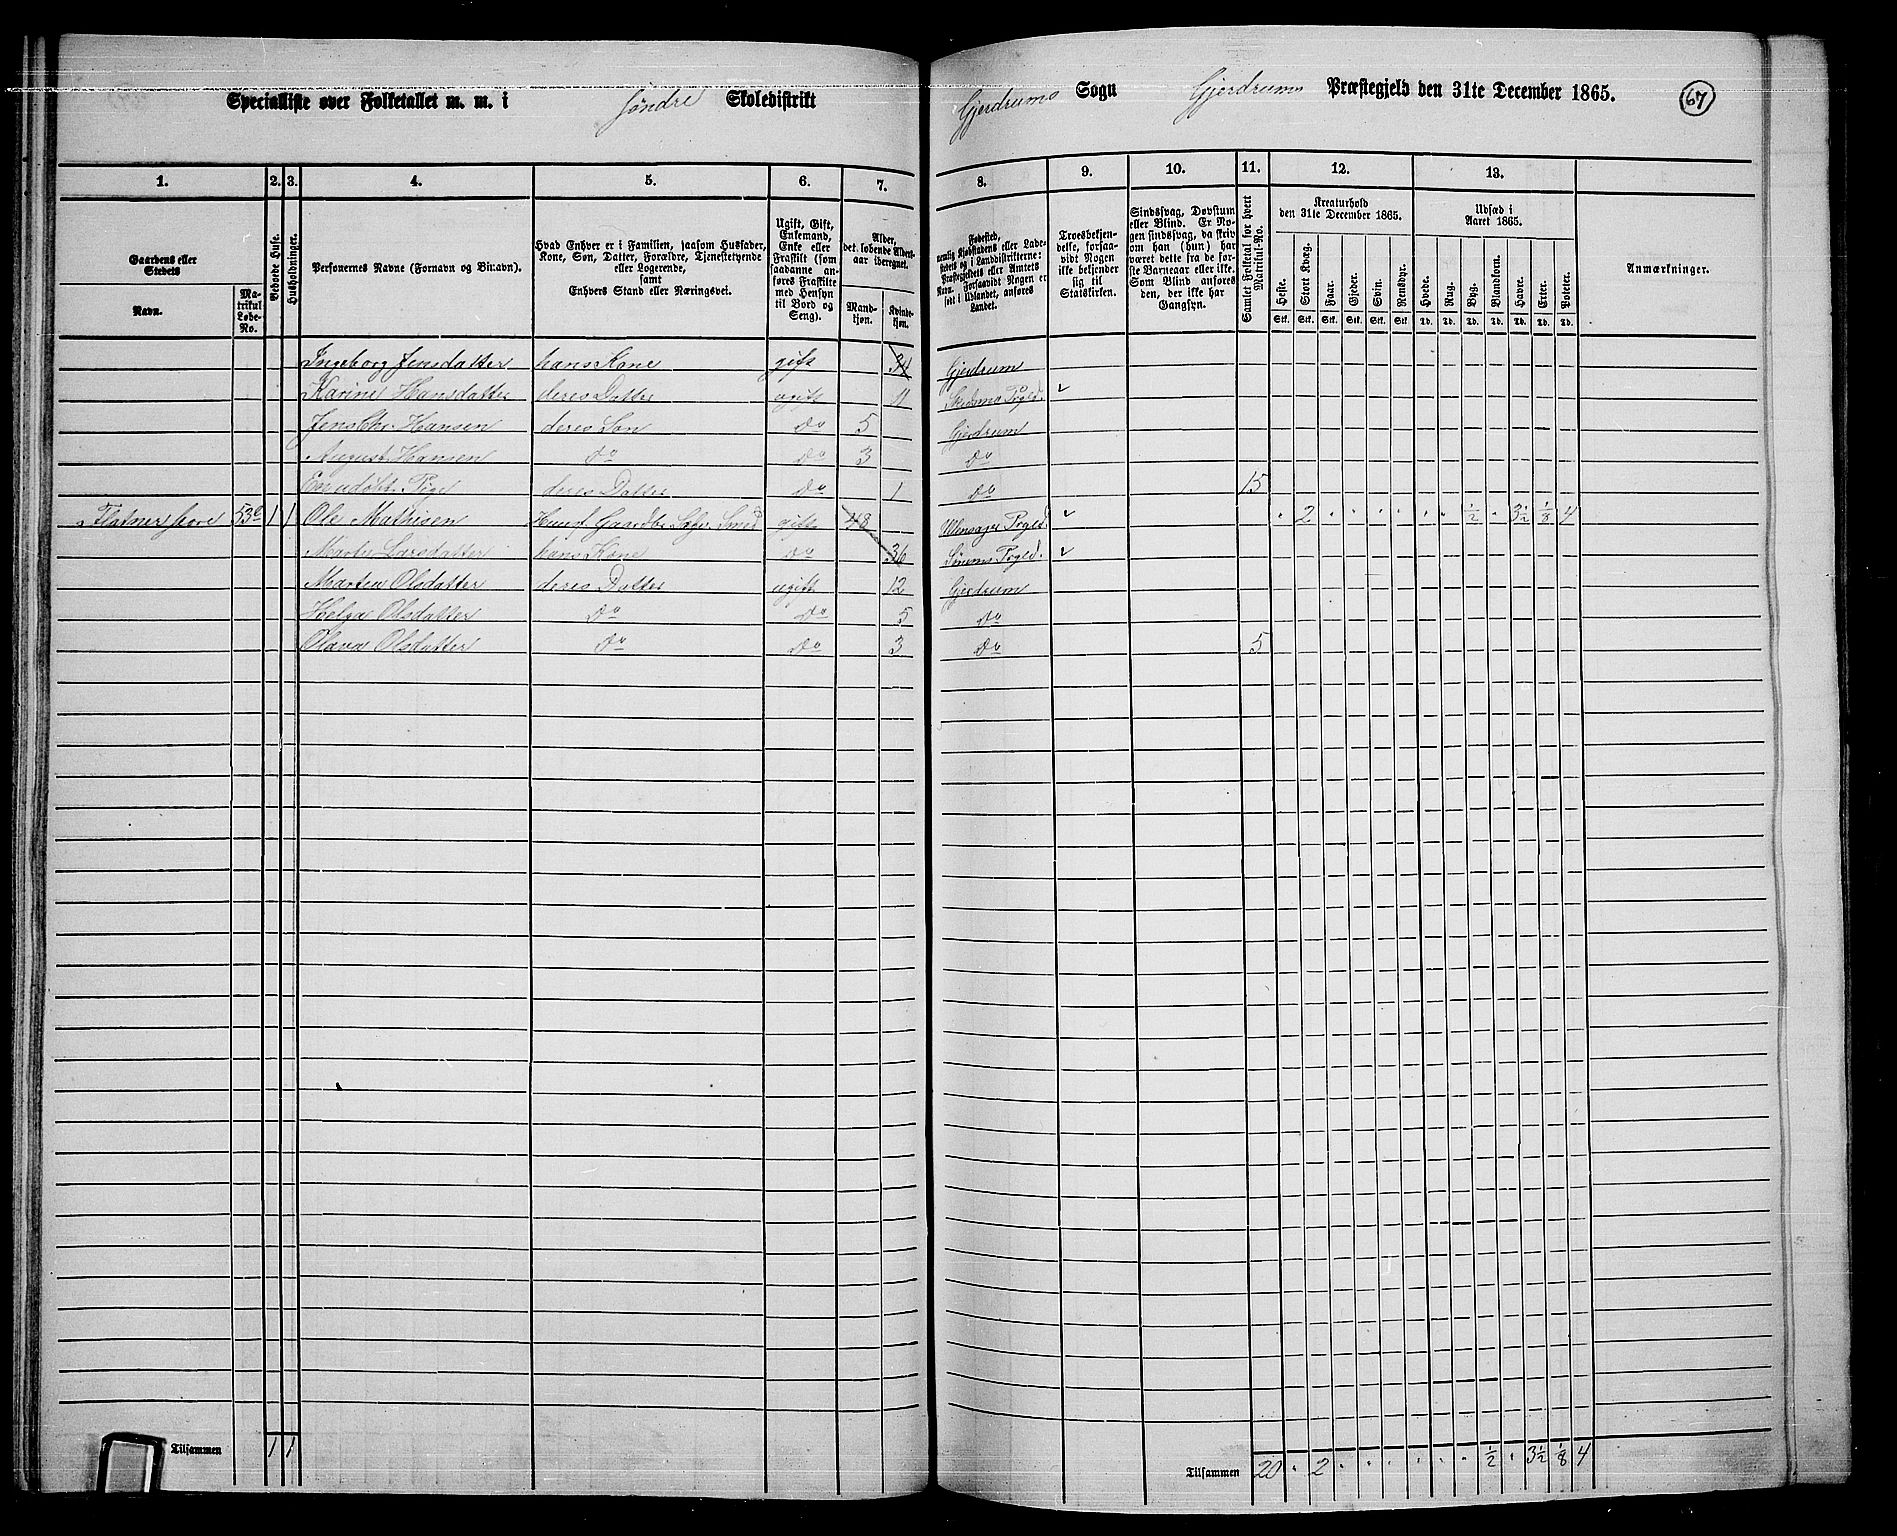 Specialliste over Folketallet m. m. i Søndre Skoledistrikt Gjerdrums Sogn Gjerdrums Præstegjeld den 31te December 1865. 67
1. 2. 3. 4. 5. 6. 7. 8. 9. 10. 11. 12. 13.
Gaardens eller Stedets
Navn.
Matrikul-Løbe-No.
Bebodde Huse.
Husholdninger.
Personernes Navne (Fornavn og Binavn).
Hvad Enhver er i Familien, (saasom Husfader, Kone, Søn, Datter, Forældre, Tjenestetyende eller Logerende,
samt
Enhvers Stand eller Næringsvei.
Ugift, Gift, Enkemand, Enke eller Fraskilt (som saadanne anføres Fraskilte med Hensyn til Bord og Seng).
Alder, det løbende Aldersaar iberegnet.
Mandkjøn.
Kvindekjøn.
Fødested, nemlig Kjøbstadens eller Ladestedets og i Landdistrikterne: Præstegjeldets eller Amtets Navn. Forsaavidt Nogen er født i Udlandet, anføres Landet.
Troesbekjendelse, forsaavidt Nogen ikke bekjender sig til Statskirken.
Sindssvag, Døvstum eller Blind. Er Nogen sindssvag, da skriv om han (hun) har været dette fra de første Barneaar eller ikke. Som Blind anføres den, der ikke har Gangsyn.
Samlet Folketal for hvert Matrikul-No.
Kreaturhold den 31te December 1865.
Heste. Stort Kvæg. Faar. Gjeder. Svin. Rensdyr.
Stk. Stk. Stk. Stk. Stk. Stk.
Udsæd i Aaret 1865.
Hvede. Rug. Byg. Blandkorn. Havre. Erter. Poteter.
Td. Td. Td. Td. Td. Td. Td.
Anmærkninger.
Ingeborg Jensdatter hans Kone gift 34 Gjerdrum
Karine Hansdatter deres Datter ugift 11 Skedsmo Pgld.
Jens Chr. Hansen deres Søn do 5 Gjerdrum
August Hansen do do 3 do
En udøbt Pige deres Datter do 1 do 15
Flatner 53 1 1 Ole Mathisen Husf. Gaardbr. Selv. Smed gift 48 Ullensager Pgld. 2 ½ 3½ ⅛ 4
Marte Larsdatter hans Kone do 36 Sørums Pgld.
Martea Olsdatter deres Datter ugift 12 Gjerdrum
Helga Olsdatter do do 5 do
Olava Olsdatter do do 3 do 5
Tilsammen 1 1
Tilsammen 20 2 ½ 3½ ⅛ 4